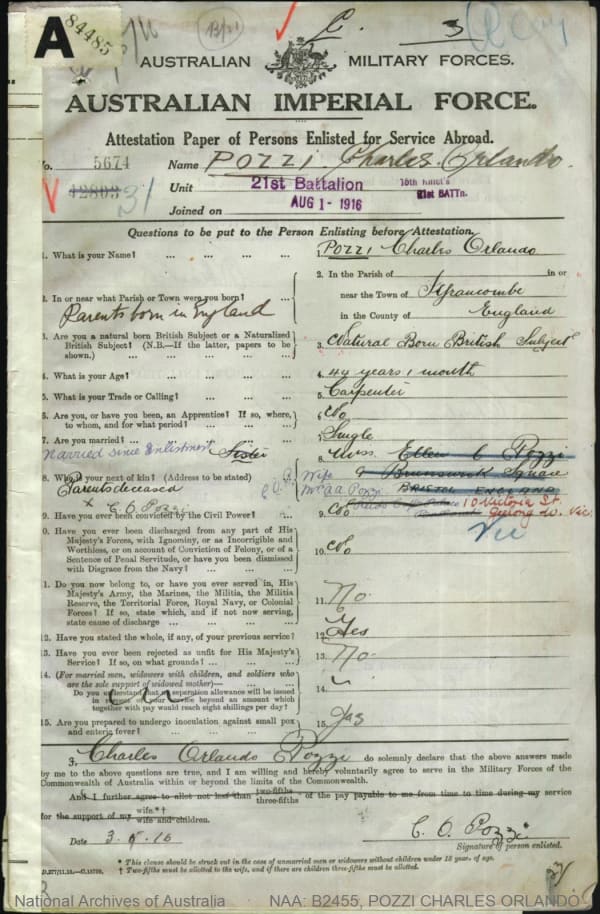 A
84485
B/21
3
AUSTRALIAN MILITARY FORCES.
AUSTRALIAN IMPERIAL FORCE.
Attestation Paper of Persons Enlisted for Service Abroad.
No. 5674 Name POZZI Charles Orlando.
12803 31 Unit 21st Battalion 15th Reinf's 21st BATTn.
Joined on AUG 1 - 1916
Questions to be put to the Person Enlisting before Attestation.
1. What is your Name? ... ... ... ... 1. POZZI Charles Orlando
2. In or near what Parish or Town were you born? ... 2. In the Parish of in or
near the Town of Ilfrancombe
Parents born in England in the County of England
3. Are you a natural born British Subject or a Naturalized
British Subject? (N.B.—If the latter, papers to be
shown.) ... ... ... ... 3. Natural Born British Subject
4. What is your Age? ... ... ... ... 4. 44 years 1 month
5. What is your Trade or Calling? ... ... ... 5. Carpenter
6. Are you, or have you been, an Apprentice? If so, where,
to whom, and for what period? ... ... ... 6. No
7. Are you married? ... ... ... ... 7. Single
Married since Enlistment Sister 8. Miss. Ellen C Pozzi
8. Who is your next of kin? (Address to be stated) Wife 9 Brunswick Square
Parents deceased C.O.P. Mrs A.A. Pozzi BRISTOL ENGLAND
+ C. O. Pozzi 10 Victoria St.
9. Have you ever been convicted by the Civil Power? ... 9. No Geelong W. Vic.
Vic
10. Have you ever been discharged from any part of His
Majesty's Forces, with Ignominy, or as Incorrigible and
Worthless, or on account of Conviction of Felony, or of a
Sentence of Penal Servitude, or have you been dismissed
with Disgrace from the Navy? ... ... ... 10. No
11. Do you now belong to, or have you ever served in, His
Majesty's Army, the Marines, the Militia, the Militia
Reserve, the Territorial Force, Royal Navy, or Colonial
Forces? If so, state which, and if not now serving,
state cause of discharge ... ... ... 11. No.
12. Have you stated the whole, if any, of your previous service? 12. Yes
13. Have you ever been rejected as unfit for His Majesty's
Service? If so, on what grounds? ... ... ... 13. No.
14. (For married men, widowers with children, and soldiers who
are the sole support of widowed mother)— ... ...
Do you understand that no separation allowance will be issued
in respect of your service beyond an amount which
together with pay would reach eight shillings per day? 14.
15. Are you prepared to undergo inoculation against small pox
and enteric fever? ... ... ... ... 15. Yes
I, Charles Orlando Pozzi do solemnly declare that the above answers made
by me to the above questions are true, and I am willing and hereby voluntarily agree to serve in the Military Forces of the
Commonwealth of Australia within or beyond the limits of the Commonwealth.
And I further agree to allot not less than two-fifths three-fifths of the pay payable to me from time to time during my service
for the support of my wife.*† wife and children.
Date 3.5.16 C. O. Pozzi
Signature of person enlisted.
* This clause should be struck out in the case of unmarried men or widowers without children under 18 years of age.
† Two-fifths must be allotted to the wife, and if there are children three-fifths must be allotted.
National Archives of Australia NAA: B2455, POZZI CHARLES ORLANDO